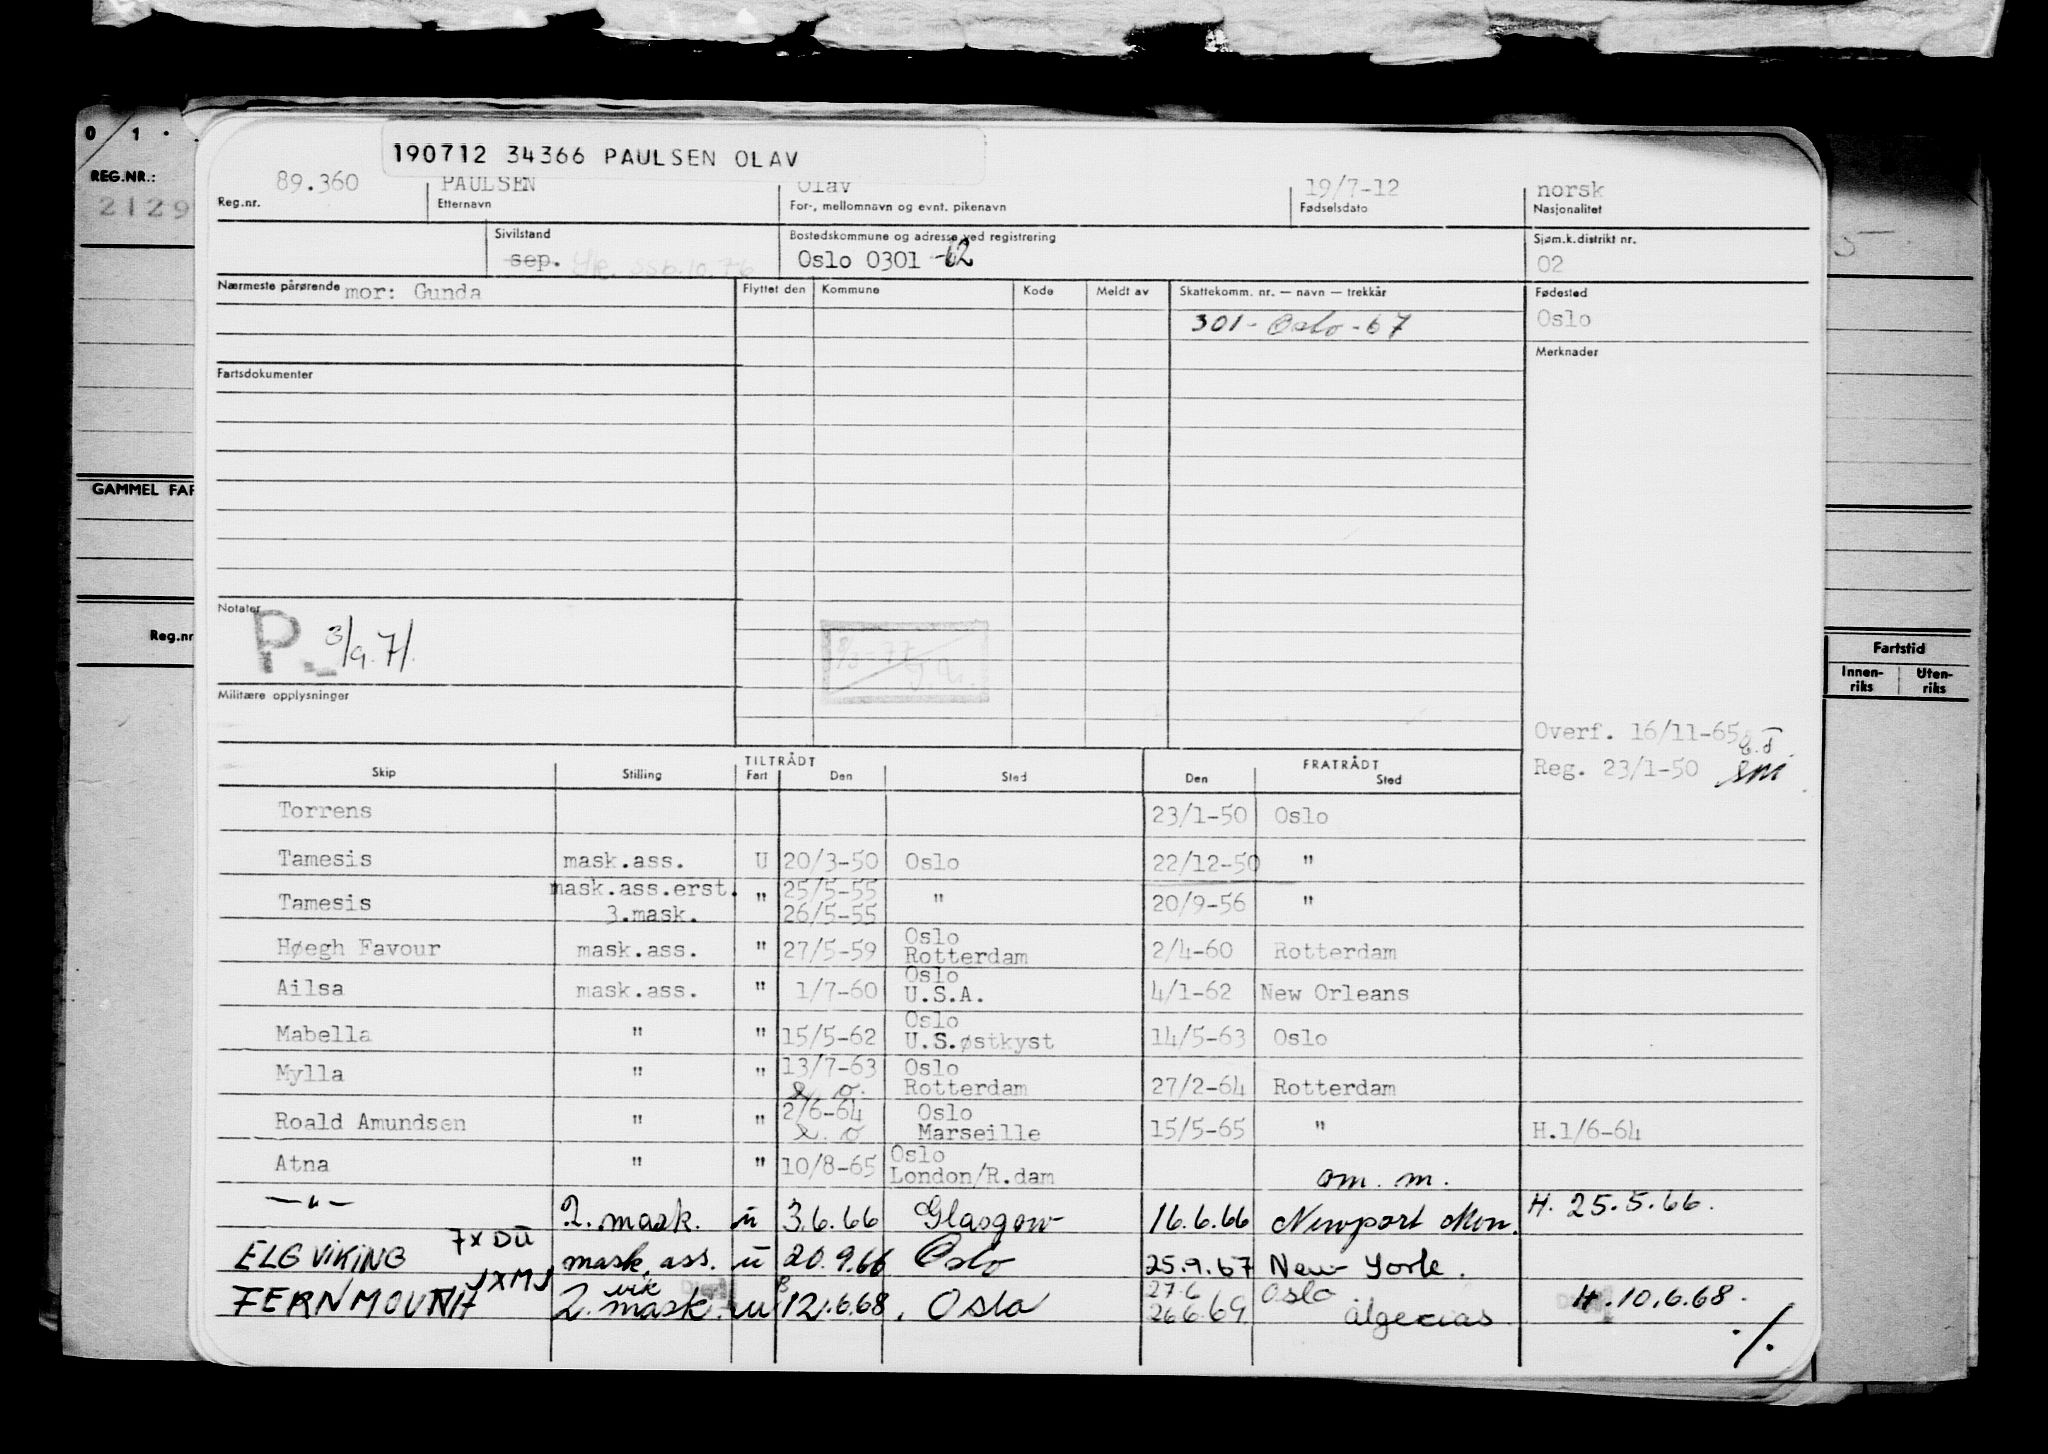 0 / 1 ·
REG.NR.:
2129
GAMMEL FAR
Reg.nr
190712 34366 PAULSEN OLAV
89.360 PAULSEN Olav 19/7-12 norsk
Reg.nr. Etternavn For-, mellomnavn og evnt. pikenavn Fødselsdato Nasjonalitet
Sivilstand Bostedskommune og adresse ved registrering Sjøm.k.distrikt nr.
sep. Oslo 0301 -02 02
Nærmeste pårørende mor: Gunda Flyttet den Kommune Kode Meldt av Skattekomm. nr. — navn — trekkår Fødested
301 - Oslo - 67 Oslo
Merknader
Fartsdokumenter
Notater
P. 3/9.71.
Militære opplysninger
Fartstid
Innen-riks Uten-riks
Overf. 16/11-65
Reg. 23/1-50
TILTRÅDT FRATRÅDT
Skip Stilling Fart Den Sted Den Sted
Torrens 23/1-50 Oslo
Tamesis mask.ass. U 20/3-50 Oslo 22/12-50 "
mask.ass.erst. 25/5-55
Tamesis " " 20/9-56 "
3.mask. 26/5-55
Oslo
Høegh Favour mask.ass. " 27/5-59 Rotterdam 2/4-60 Rotterdam
Oslo
Ailsa mask.ass. " 1/7-60 U.S.A. 4/1-62 New Orleans
Oslo
Mabella " " 15/5-62 U.S.østkyst 14/5-63 Oslo
13/7-63 Oslo
Mylla " " Rotterdam 27/2-64 Rotterdam
2/6-64 Oslo
Roald Amundsen " " Marseille 15/5-65 " H.1/6-64
Oslo
Atna " " 10/8-65 London/R.dam om. m.
— " — 2. mask. u 3.6.66 Glasgow 16.6.66 Newport Mon. H. 25.5.66.
ELG VIKING 7XDU mask. ass. u 20.9.66 Oslo 25.9.67 New York.
JXMJ vik 27.6 Oslo
FERNMOUNT 2. mask. u 12.6.68. Oslo 26.6.69 algeciras H. 10.6.68.
./.